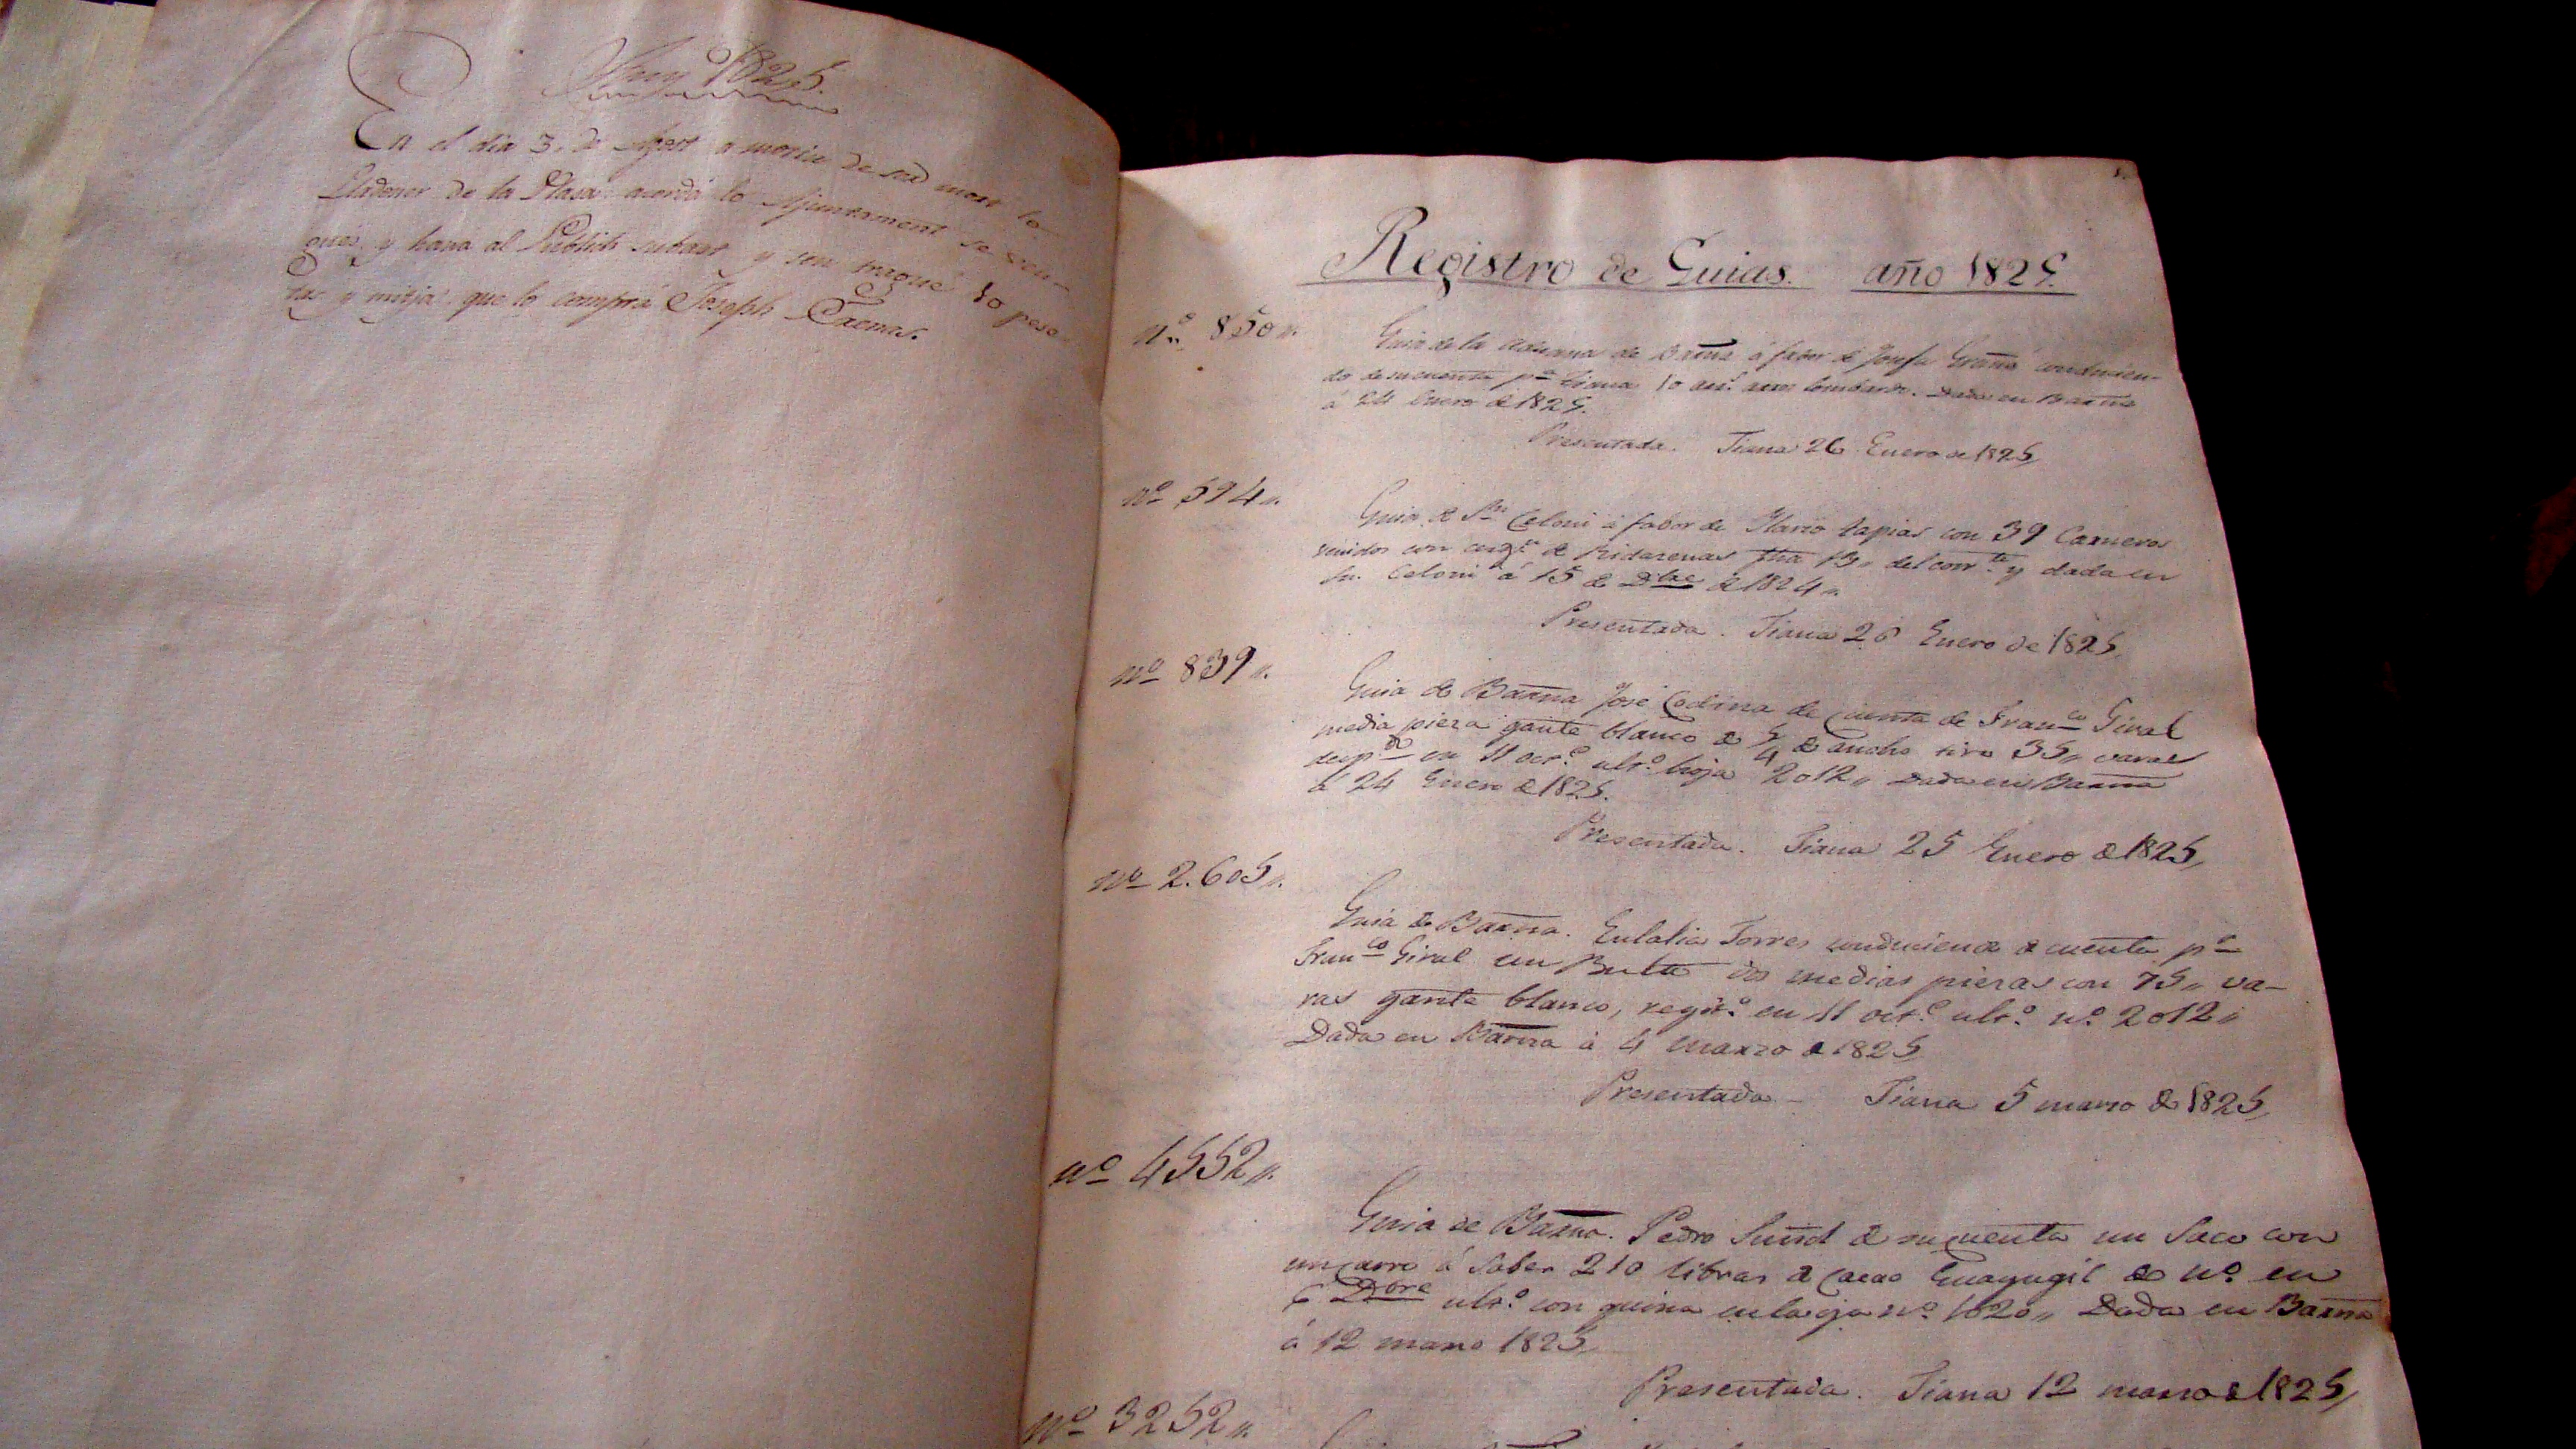 Any 1825.
En el dia 3, de Agost a moria de sed mort lo
Lladoner de la Plasa acordá lo Ajuntament se ven-
qués y haná al Publich subast y sen tragué 30 pese-
tas y mitja que lo comprá Joseph
Registro de Guias. año 1825.
nº 850,,
Guia de la Aduana de Barna á fabor de Josefa conducien-
do de su cuenta pª Tiana 10 arrs arros lombardo. Dada en Barna
á 24 Enero de 1825.
Presentada. Tiana 26 Enero de 1825,,
nº 594,,
Guia de Sn Celoni á fabor de Mario tapias con 39 Carneros
venidos con de Ridarenas fha 13,, del corrte y dada en
Sn. Celoni á 15 de Dbre de 1824,,
Presentada. Tiana 26 Enero de 1825,,
nº 839,,
Guia de Barna José Codina de cuenta de Franco Giral
media pieza gante blanco de 5/4 de ancho tiro 35,, varas
en 11 octe ulto hoja 2012,, Dada en Barna
á 24 Enero de 1825.
Presentada. Tiana 25 Enero de 1825,,
nº 2.605,,
Guia de Barna. Eulalia Torres conduciendo de cuenta pª
Franco Giral un Bulto dos medias piezas con 75,, va-
ras gante blanco, regisº en 11 octe ulto nº 2012,,
Dada en Barna á 4 Marzo de 1825
Presentada - Tiana 5 marzo de 1825,,
nº 4552,,
Guia de Barna. Pedro Suñol de su cuenta un Saco con
un carro á Saber 210 libras de Cacao Guayaquil de nº en
6 Dbre ulto con guia en la oja nº 1620,, Dada en Barna
á 12 marzo 1825,,
Presentada. Tiana 12 marzo de 1825,,
nº 3252,,